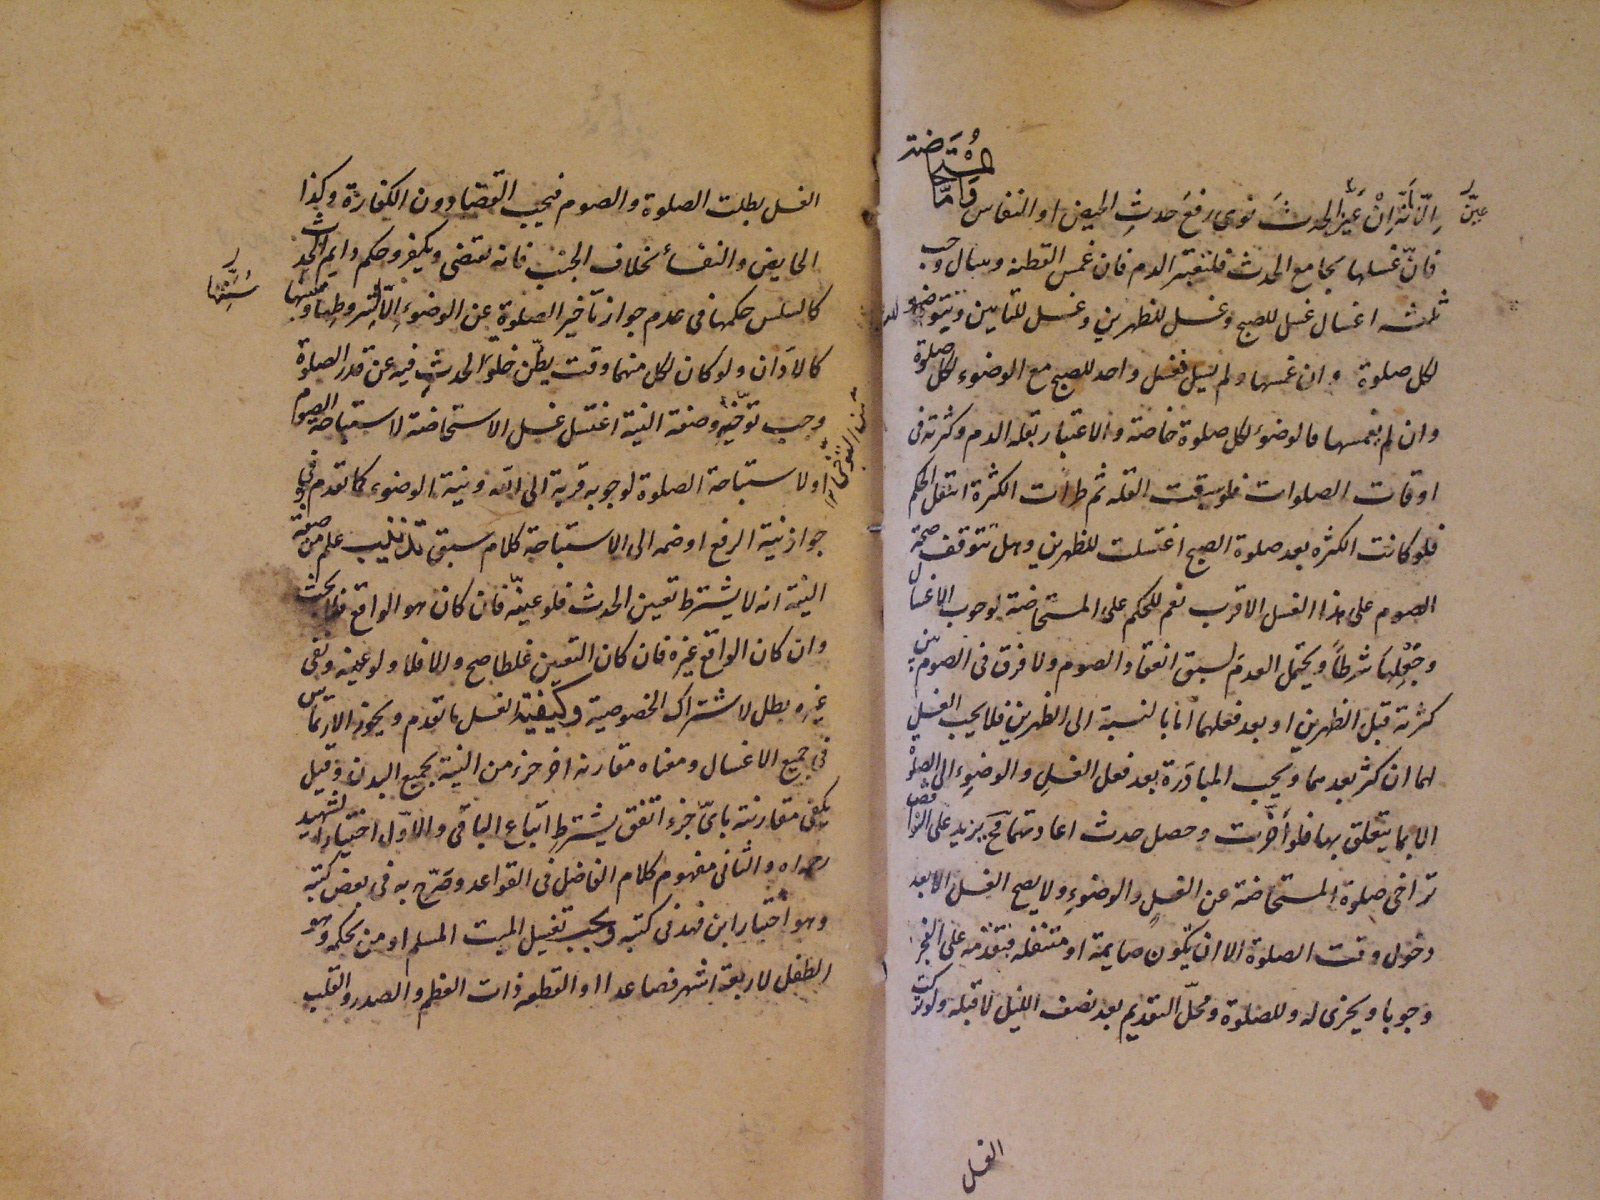 إلّا أنّه إنْ عيّن الحدثَ نوى رفعَ حدثِ الحيض او النفاس وامّا المُستحاضة
فانّ غسلها يجامع الحدث فلتعتبر الدم فان غمس القطنة وسال وجب
ثلثه اغسال غسل للصبح وغسل للظهرين وغسل للعشائين وتتوضؤ
لكل صلوة وان غمسها ولم يسل فغسل واحد للصبح مع الوضوء لكل صلوة
وان لم يغمسها فالوضوء لكل صلوة خاصة والاعتبار بقله الدم وكثرته فى
اوقات الصلوات فلو سبقت القله ثم طرات الكثرة انتقل الحكم
فلو كانت الكثره بعد صلوة الصبح اغتسلت للظهرين وهل تتوقف صحة
الصوم على هذا الغسل الاقرب نعم للحكم على المستحاضة بوجوب الاغسال
وجَعْلِها شرطاً ويحتمل العدمَ لسبق انعقاد الصوم ولا فرق فى الصوم بين
كثرته قبل الظهرين او بعد فعلهما امّا بالنسبة الى الظهرين فلا يجب الغسل
لهما ان كثر بعدهما ويجب المبادَرة بعد فعل الغسلِ والوضوءِ الى الصلوة
الا بما يتعلق بها فلو أخّرت وحصل حدث اعادتهما ح يزيد على النواقض
تراخى صلوة المستحاضة عن الغسل والوضوءِ ولا يصح الغسل الا بعد
دخول وقت الصلوة الا ان تكون صايمة او متنفله فتقدمه على الفجر
وجوبا ويجزى له وللصلوة ومحلّ التقديم بعد نصف الليل لا قبله ولو تركت
الغسل
الغسل بطلت الصلوة والصوم فيجب القضا دون الكفارة وكذا
الحايض والنفسأ بخلاف الجنب فانه يقضى ويكفر وحكم دايم الحدث
كالسلس حكمها فى عدم جواز تأخير الصلوة عن الوضوءِ الّا لشروطها
كالاذان ولو كان لكل منهما وقت يظنّ خلوّ الحدث فيه عن قدر الصلوة
وجب توخّيه وصفة النية اغتسل غسل الاستحاضة لاستباحة الصوم
او لاستباحة الصلوة لوجوبه قربة الى الله ونية الوضوء كما تقدم وفى
جواز نية الرفع او ضمه الى الاستباحة كلام سبق تذنيب علم من صفة
النية انه لا يشترط تعيين الحدث فلو عينّه فان كان هو الواقع فلا بحث
وان كان الواقع غيره فان كان التعيين غلطا صح والا فلا ولو عينه ونفى
غيره بطل لاشتراك الخصوصية وكيفية الغسل ما تقدم ويجوز الارتماس
فى جميع الاغسال ومعناه مقارنة اخر جزء من النية بجميع البدن وقيل
يكفى مقارنته باىّ جزء اتفق بشرط اتباع الباقى والاوّل اختيار الشهيد
رحمه اه والثانى مفهوم كلام الفاضل فى القواعد وصَرّح به فى بعض كتبه
وهو اختيار ابن فهد فى كتبه ويجب تغسيل الميت المسلم او من بحكمه وهو
الطفل لاربعة اشهر فصاعدا او القطعه ذات العظم والصدر والقلب